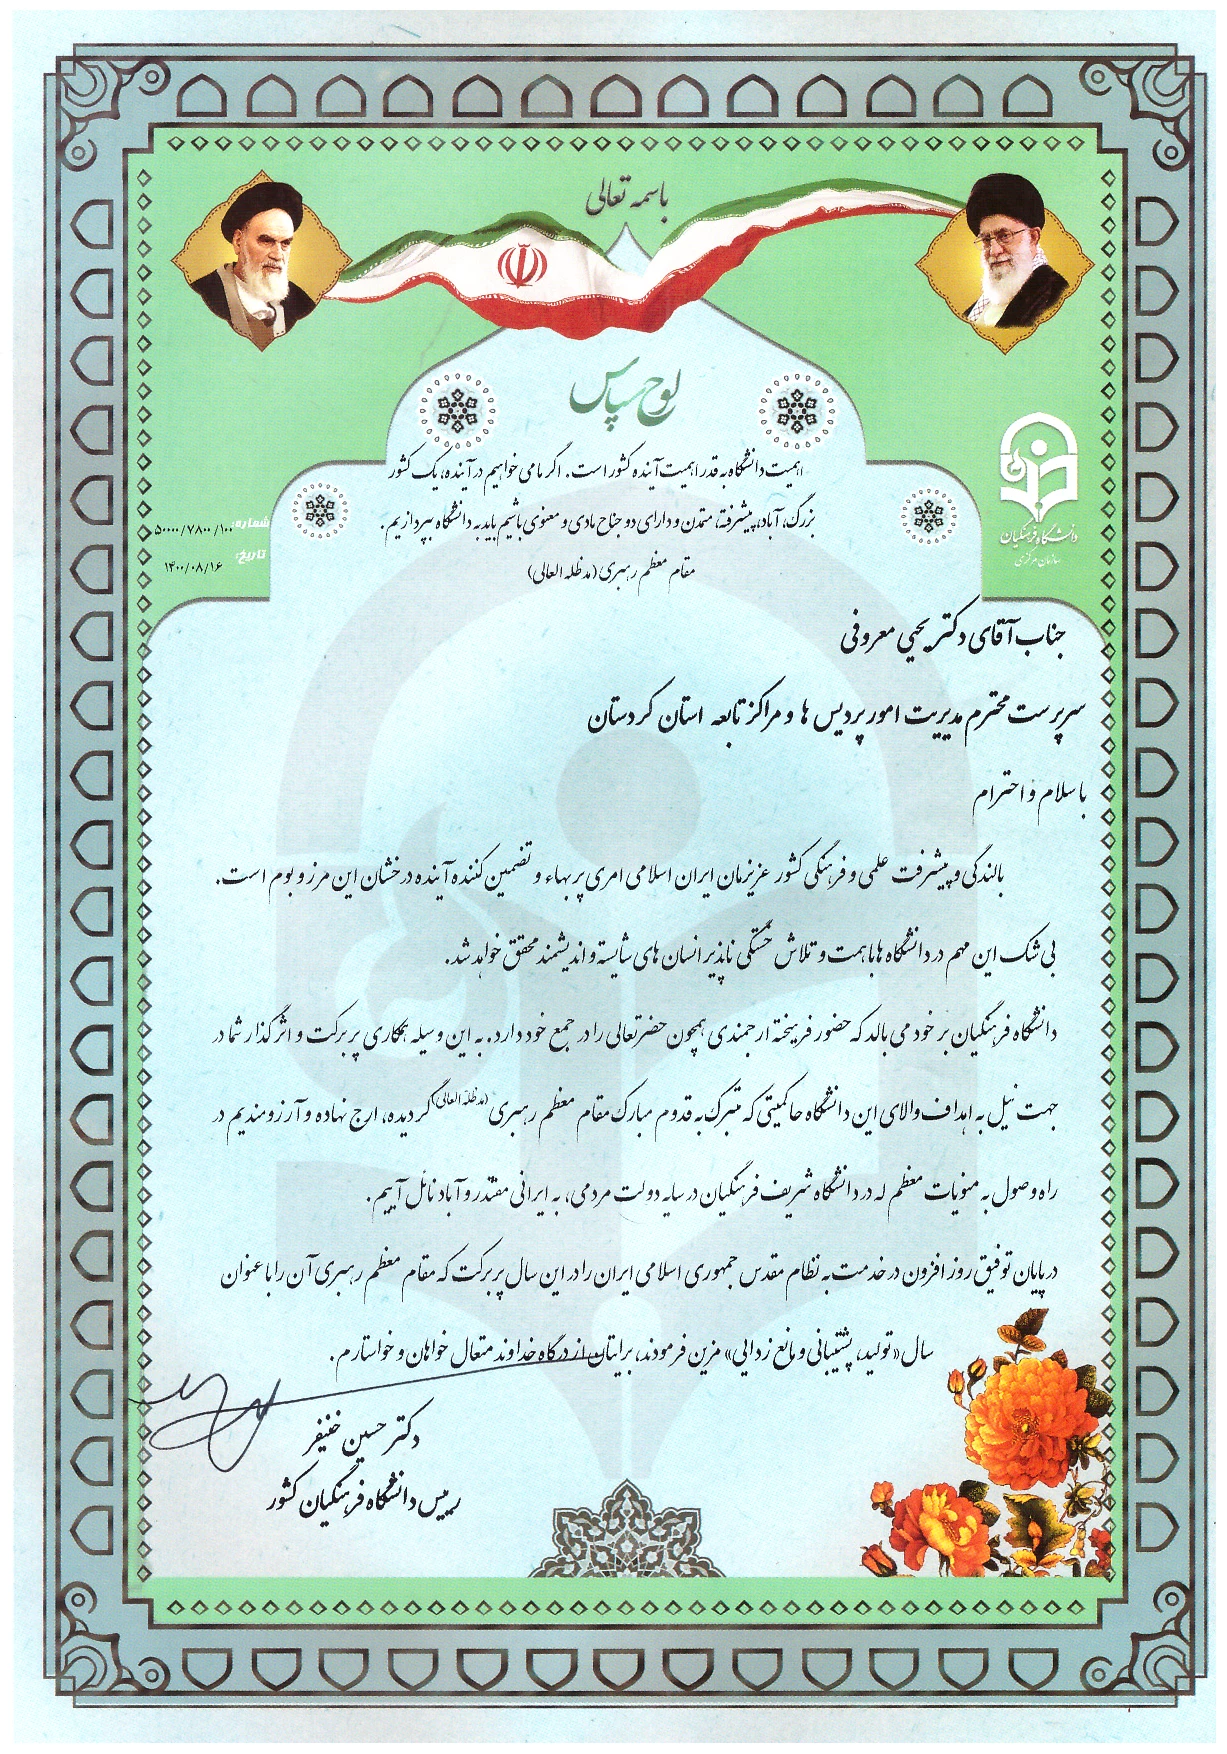 باسمه تعالی
لوح سپاس
اهمیت دانشگاه به قدر اهمیت آینده کشور است. اگر ما می خواهیم در آینده، یک کشور
بزرگ، آباد، پیشرفته، متمدن و دارای دو جناح مادی و معنوی باشیم باید به دانشگاه بپردازیم.
مقام معظم رهبری (مدظله العالی)
دانشگاه فرهنگیان
سازمان مرکزی
شماره: ۵۰۰۰۰/۷۸۰۰/۱۰۰
تاریخ: ۱۴۰۰/۰۸/۱۶
جناب آقای دکتر یحیی معروفی
سرپرست محترم مدیریت امور پردیس ها و مراکز تابعه استان کردستان
با سلام و احترام
بالندگی و پیشرفت علمی و فرهنگی کشور عزیزمان ایران اسلامی امری پر بهاء و تضمین کننده آینده درخشان این مرز و بوم است.
بی شک این مهم در دانشگاه ها با همت و تلاش خستگی ناپذیر انسان های شایسته و اندیشمند محقق خواهد شد.
دانشگاه فرهنگیان بر خود می بالد که حضور فریخته ارجمندی همچون حضرتعالی را در جمع خود دارد. به این وسیله همکاری پر برکت و اثرگذار شما در
جهت نیل به اهداف والای این دانشگاه حاکمیتی که متبرک به قدوم مبارک مقام معظم رهبری (مدظله العالی) گردیده، ارج نهاده و آرزومندیم در
راه وصول به منویات معظم له در دانشگاه شریف فرهنگیان در سایه دولت مردمی، به ایرانی مقتدر و آباد نائل آییم.
در پایان توفیق روز افزون در خدمت به نظام مقدس جمهوری اسلامی ایران را در این سال پر برکت که مقام معظم رهبری آن را با عنوان
سال «تولید، پشتیبانی و مانع زدایی» مزین فرمودند، برایتان از درگاه خداوند متعال خواهان و خواستارم.
دکتر حسین خنیفر
رییس دانشگاه فرهنگیان کشور